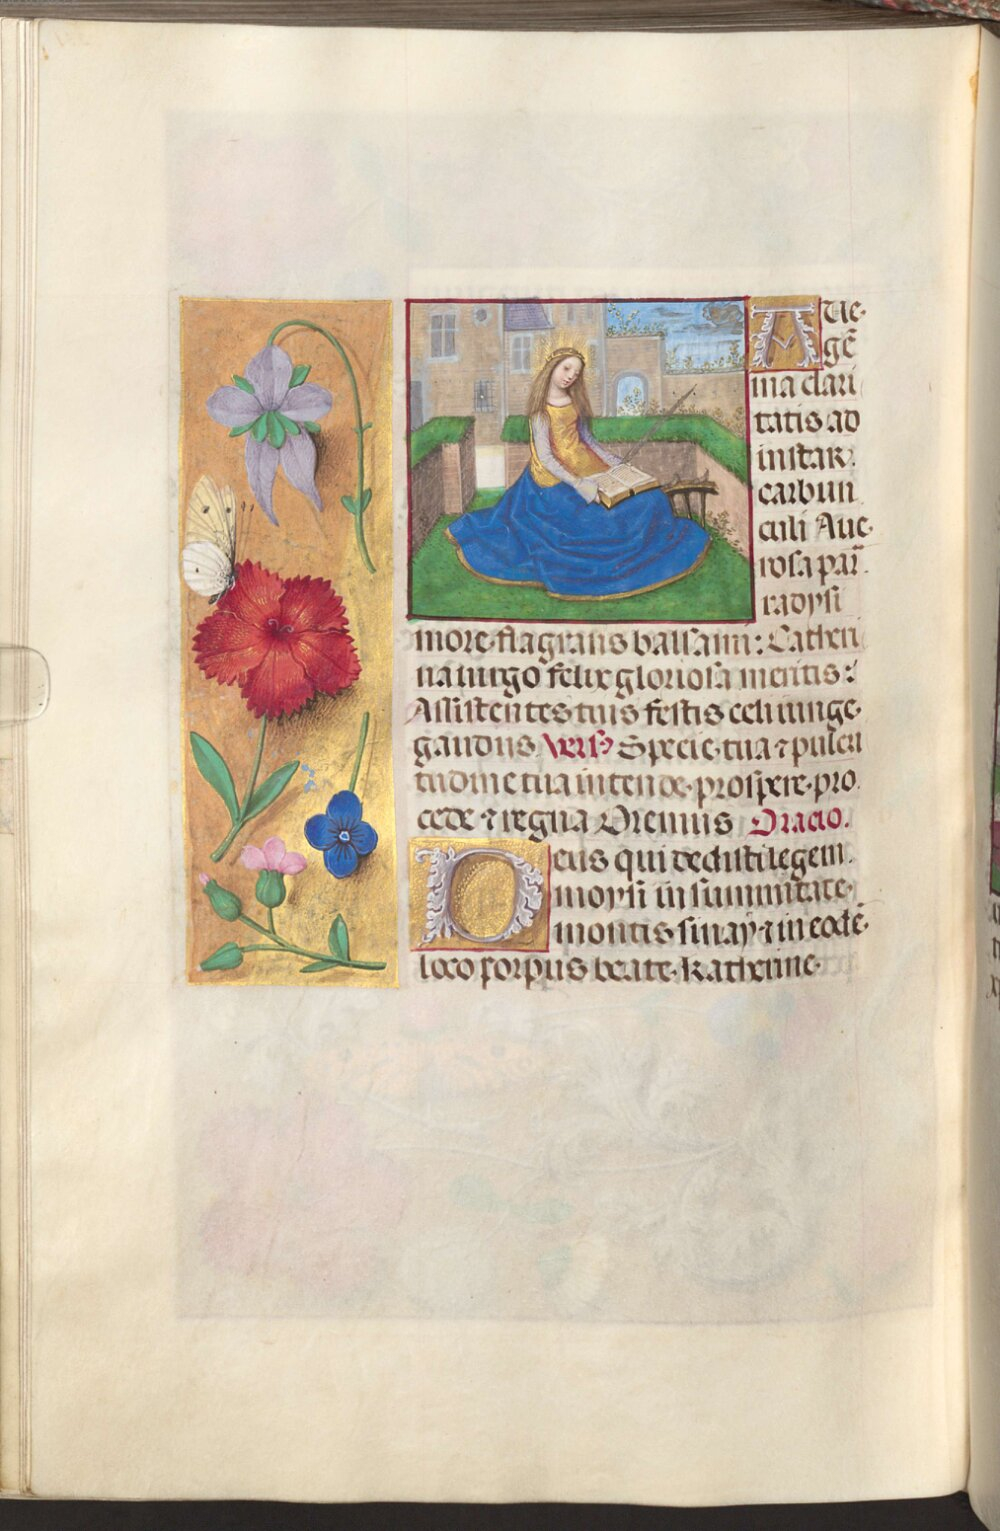 Aue.
gē
ma clari
tatis ad
instar.
carbun
culi Aue.
rosa par̄.
radysi
more.flagrans balsami: Catheri
na uirgo felix gloriosa meritis:
Assistentes tuis festis celi iunge.
gaudiis. Vers⁹ Specie.tua ⁊ pulcri
tudine tua intende.prospere.pro.
cede ⁊ regna Oremus Oracio.
Deus qui dedisti legem.
moysi in summitate.
montis sinay.⁊ in eodē.
loco corpus beate.Katherine.